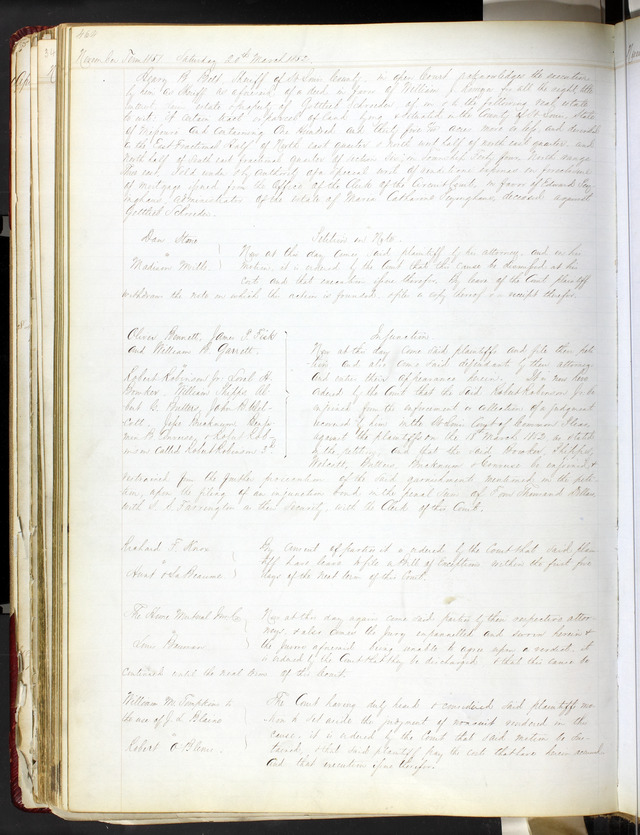 464
Term 1851 Saturday 20th March 1852
Henry B. Belt Sheriff of St Louis County, in open Court acknowledges the execution
by him as Sheriff as aforesaid of a deed in favor of William J. for all the right title
interest and estate & property of Gottlieb Schroeder of in & to the following real estate
to wit. A certain tract or parcel of land lying & situated in the County of St Louis, State
of Missouri and containing One Hundred and thirty five acres more or less, and described
as the East Fractional Half of North east quarter & north west half of north east quarter and
north half of south east fractional quarter of section in township forty four North range
east. Sold under & by authority of a special writ of on foreclosure
of mortgage issued from the Office of the Clerk of the Circuit Court, in favor of Edward
administrator of the estate of Maria Catharine deceased against
Gottlieb Schroeder.
Dan Stone
Petition in Note.
vs
Madison Mills.
Now at this day comes said plaintiff by his attorney, and on his
motion, it is ordered by the Court that this cause be dismissed at his
cost and that execution issue therefor. By leave of the Court plaintiff
withdraws the note on which this action is founded, after a copy thereof & receipt therefor.
Oliver Bennett, James P. Fisk
and William W. Garrett.
Injunction
vs
Robert Robinson Jr. H.
William Phelps
C. Butters, John H.
Buckmam,
& Robert Rob
inson called Robert Robinson 3d
Now at this day come said plaintiffs and file their peti
tion and also come said defendants by their attorney
and enter their appearance herein. It is now here
ordered by the Court that the said Robert Robinson Jr. be
enjoined from the enforcement or collection of a judgment
recovered by him in the St Louis Court of Common Pleas,
against the plaintiffs on the 18 March 1852, as stated
in the petition; and that the said Phelps,
Buckmam & be enjoined &
restrained from the further prosecution of the said garnishment mentioned in the peti
tion, upon the filing of an injunction bond in the penal sum of Four Thousand Dollars
with S. C. Farrington as their Security, with the Clerk of this Court.
Richard F.
vs
Hunt & La Beaume
By consent of parties it is ordered by the Court that said plain
tiff have leave to file a Bill of Exceptions within the first four
days of the next term of this Court.
The Home Mutual Ins Co
vs
Louis Bauman
Now at this day again come said parties by their respective attor
neys & also comes the jury empannelled and sworn herein &
the jurors aforesaid being unable to agree upon a verdict it
is ordered by the Court that they be discharged & that this cause be
continued until the next term of this Court.
William M. Tompkins to
the use of J. L. Blaine
vs
Robert A. Barnes.
The Court having duly heard & considered said plaintiffs mo
tion to set aside the judgment of nonsuit rendered in this
cause, it is ordered by the Court that said motion be over
ruled, & that said plaintiff pay the costs that have herein accrued
and that execution issue therefor.